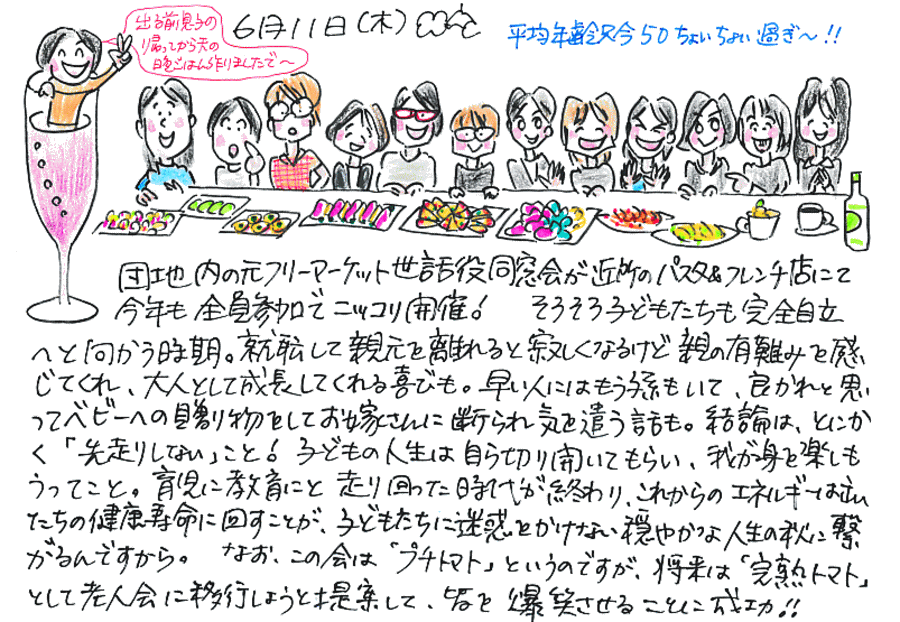 出る前息子の
帰ってから夫の
晩ごはん作りましたで〜
6月11日(木)
平均年齢只今50ちょいちょい過ぎ〜!!
団地内の元フリーマーケット世話役同窓会が近所のパスタ&フレンチ店にて
今年も全員参加でニッコリ開催! そろそろ子どもたちも完全自立
へと向かう時期。就転して親元を離れると寂しくなるけど親の有難みを感
じてくれ、大人として成長してくれる喜びも。早い人にはもう孫もいて、良かれと思
ってベビーへの贈り物をしてお嫁さんに断られ気を遣う話も。結論は、とにか
く「先走りしない」こと! 子どもの人生は自ら切り開いてもらい、我が身を楽しも
うってこと。育児に教育にと走り回った時代が終わり、これからのエネルギーは
たちの健康寿命に回すことが、子どもたちに迷惑をかけない穏やかな人生の秋に繋
がるんですから。 なお、この会は「プチトマト」というのですが、将来は「完熟トマト」
として老人会に移行しようと提案して、皆を爆笑させることに成功!!